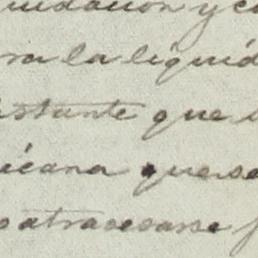 uidacion y co
ra la liquid
stante que
icana que se
atracarse